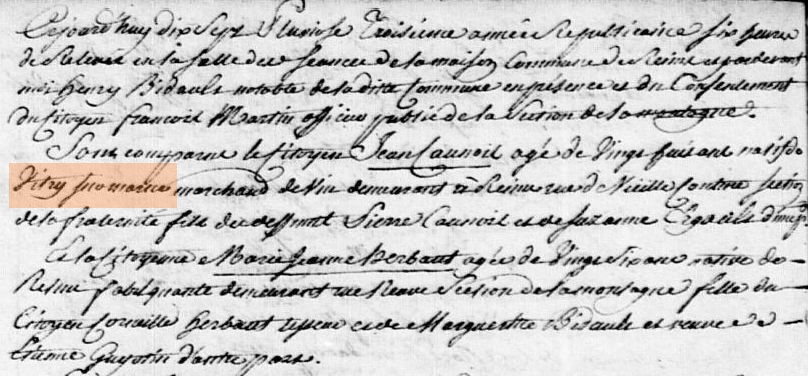 Cejourd'huy dix Sept Pluviose Troisieme année Republicaine six heure
de Relevée en la Salle des Seances de la maison Commune de Reims et pardevant
moi henry Bidault notable de la ditte Commune en présence et du Consentement
du Citoyen francois Martin officier public de la Section de la montagne.
Sont comparu le Citoyen Jean Caunoil agé de Vingt huit ans natif de
Vitry sur marne marchand de Vin demeurant à Reims rue de Vieille Section
de la fraternité fils de deffunt Pierre Caunoil et de Suzanne d'une p.
Et la Citoyenne Marie Jeanne Herbaut agée de Vingt Six ans native de
Reims fabriquante demeurant rue Neuve Section de la montagne fille du
Citoyen Corneille herbaut tisseur et de Marguerite Bidault et veuve de
Etienne Guyotin d'autre part.